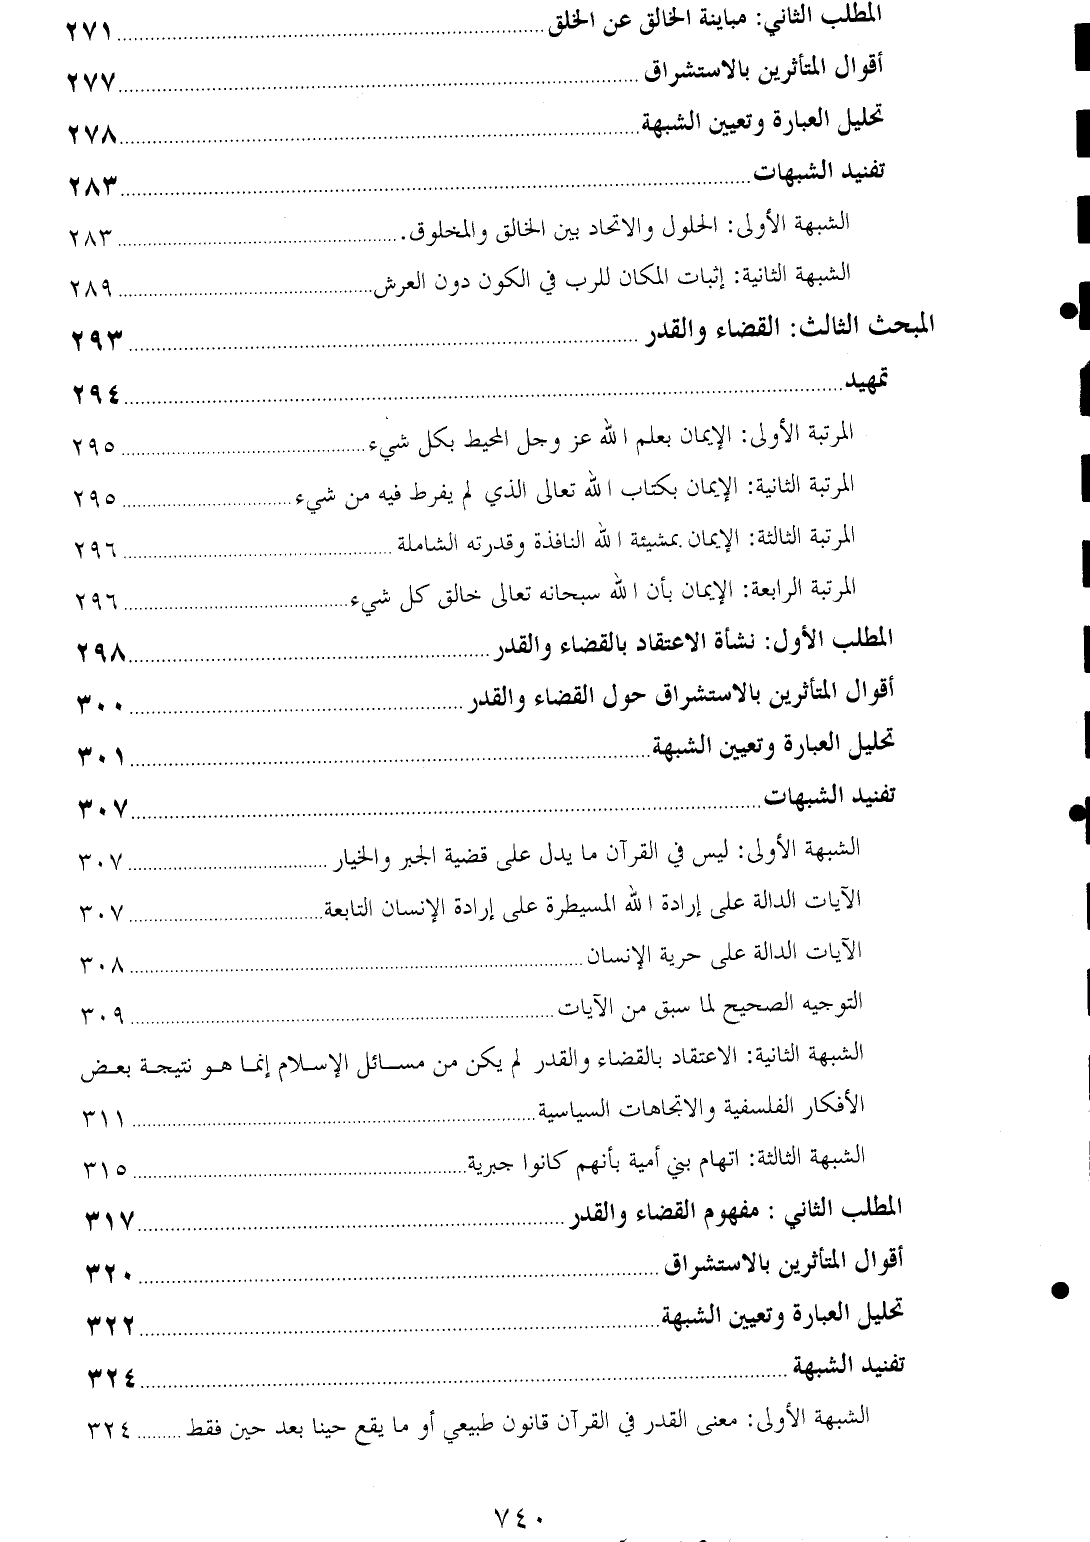 المطلب الثاني: مباينة الخالق عن الخلق ........ ٢٧١
أقوال المتأثرين بالاستشراق ........ ٢٧٧
تحليل العبارة وتعيين الشبهة ........ ٢٧٨
تفنيد الشبهات ........ ٢٨٣
الشبهة الأولى: الحلول والاتحاد بين الخالق والمخلوق. ........ ٢٨٣
الشبهة الثانية: إثبات المكان للرب في الكون دون العرش ........ ٢٨٩
المبحث الثالث: القضاء والقدر ........ ٢٩٣
تمهيد ........ ٢٩٤
المرتبة الأولى: الإيمان بعلم الله عز وجل المحيط بكل شيء ........ ٢٩٥
المرتبة الثانية: الإيمان بكتاب الله تعالى الذي لم يفرط فيه من شيء ........ ٢٩٥
المرتبة الثالثة: الإيمان بمشيئة الله النافذة وقدرته الشاملة ........ ٢٩٦
المرتبة الرابعة: الإيمان بأن الله سبحانه تعالى خالق كل شيء ........ ٢٩٦
المطلب الأول: نشأة الاعتقاد بالقضاء والقدر ........ ٢٩٨
أقوال المتأثرين بالاستشراق حول القضاء والقدر ........ ٣٠٠
تحليل العبارة وتعيين الشبهة ........ ٣٠١
تفنيد الشبهات ........ ٣٠٧
الشبهة الأولى: ليس في القرآن ما يدل على قضية الجبر والخيار ........ ٣٠٧
الآيات الدالة على إرادة الله المسيطرة على إرادة الإنسان التابعة ........ ٣٠٧
الآيات الدالة على حرية الإنسان ........ ٣٠٨
التوجيه الصحيح لما سبق من الآيات ........ ٣٠٩
الشبهة الثانية: الاعتقاد بالقضاء والقدر لم يكن من مسائل الإسلام إنما هو نتيجة بعض
الأفكار الفلسفية والاتجاهات السياسية ........ ٣١١
الشبهة الثالثة: اتهام بني أمية بأنهم كانوا جبرية ........ ٣١٥
المطلب الثاني : مفهوم القضاء والقدر ........ ٣١٧
أقوال المتأثرين بالاستشراق ........ ٣٢٠
تحليل العبارة وتعيين الشبهة ........ ٣٢٢
تفنيد الشبهة ........ ٣٢٤
الشبهة الأولى: معنى القدر في القرآن قانون طبيعي أو ما يقع حينا بعد حين فقط ........ ٣٢٤
٧٤٠